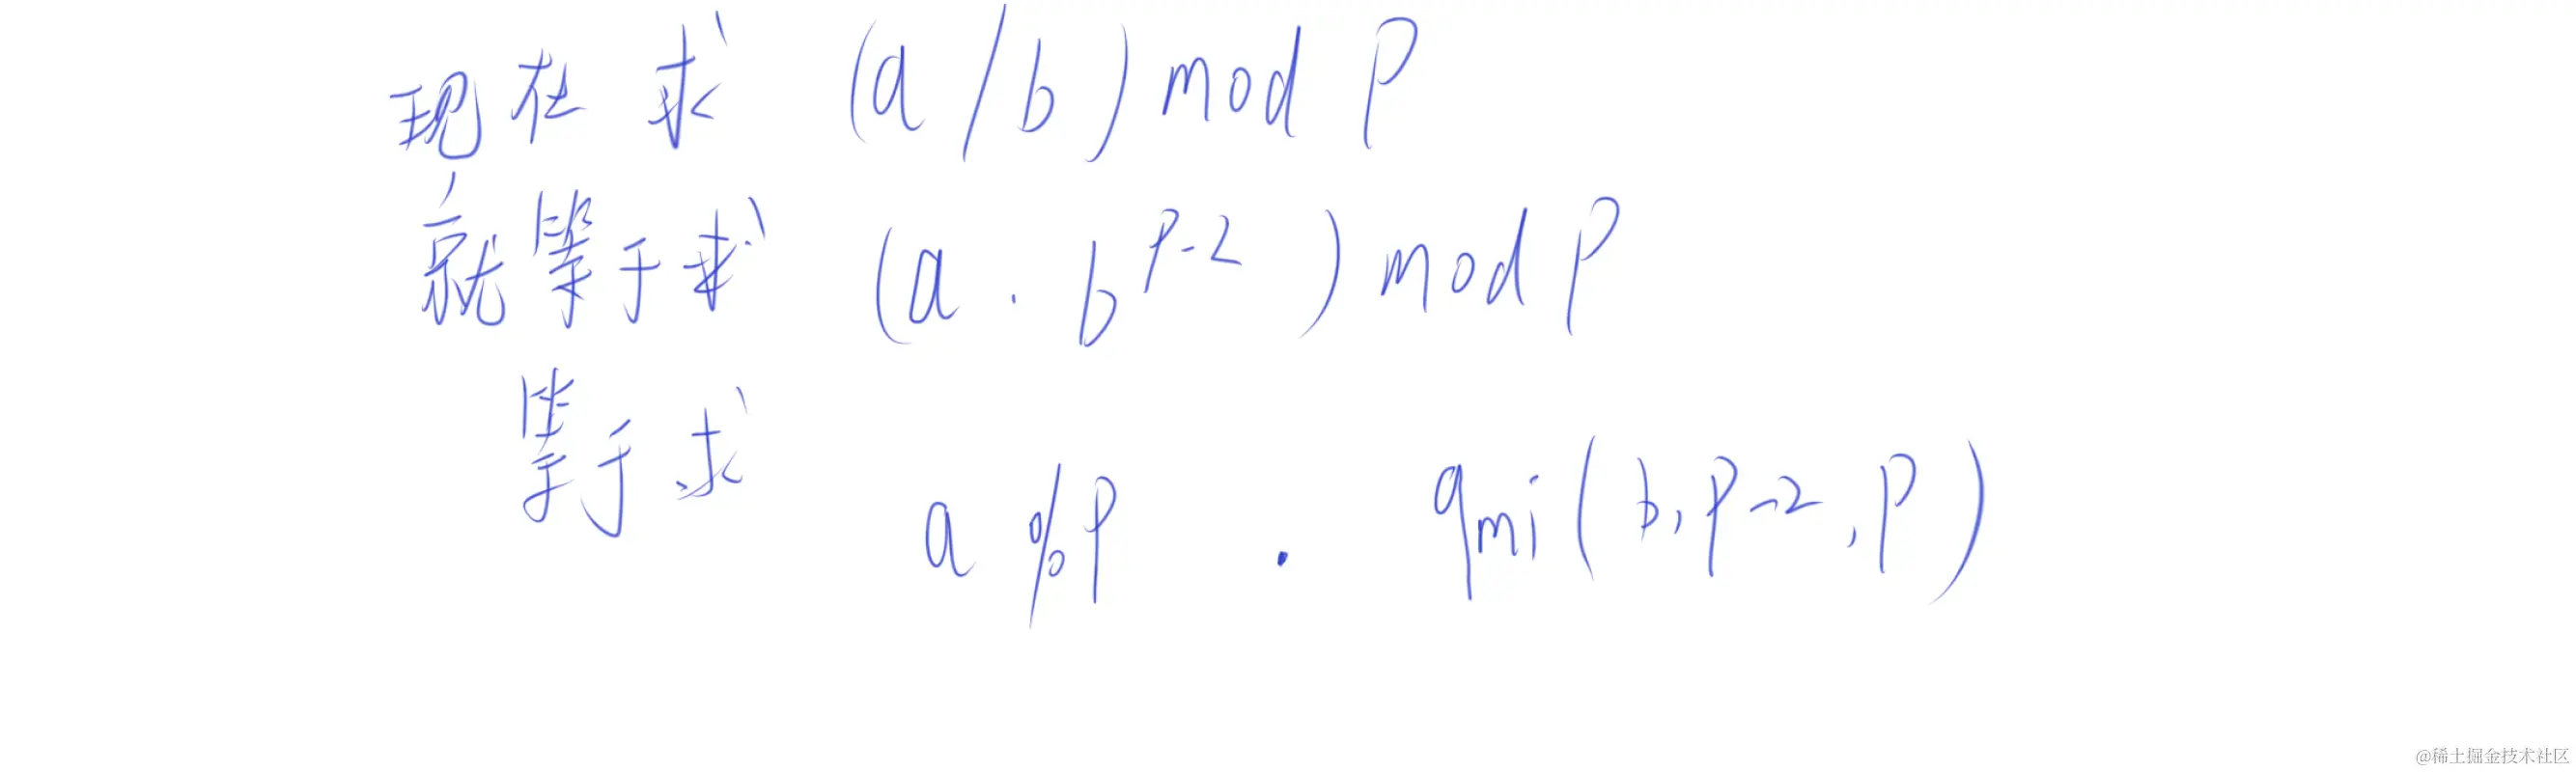 现在求 (a/b) mod P
就等于求 (a · b^{P-2}) mod P
等于求 a % P · qmi(b, P-2, P)
@稀土掘金技术社区